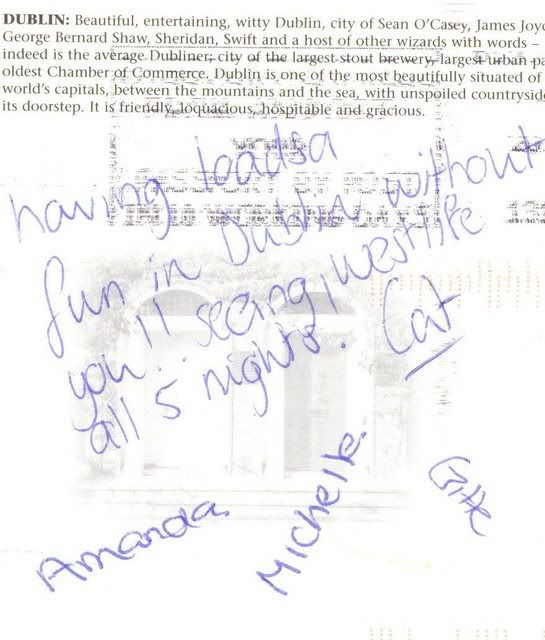 DUBLIN: Beautiful, entertaining, witty Dublin, city of Sean O'Casey, James Joyc
George Bernard Shaw, Sheridan, Swift and a host of other wizards with words –
indeed is the average Dubliner; city of the largest stout brewery, largest urban pa
oldest Chamber of Commerce. Dublin is one of the most beautifully situated of
world's capitals, between the mountains and the sea, with unspoiled countryside
its doorstep. It is friendly, loquacious, hospitable and gracious.
having loadsa
fun in Dublin without
you!! seeing westlife
all 5 nights. Cat
Amanda
Michelle
Gitte